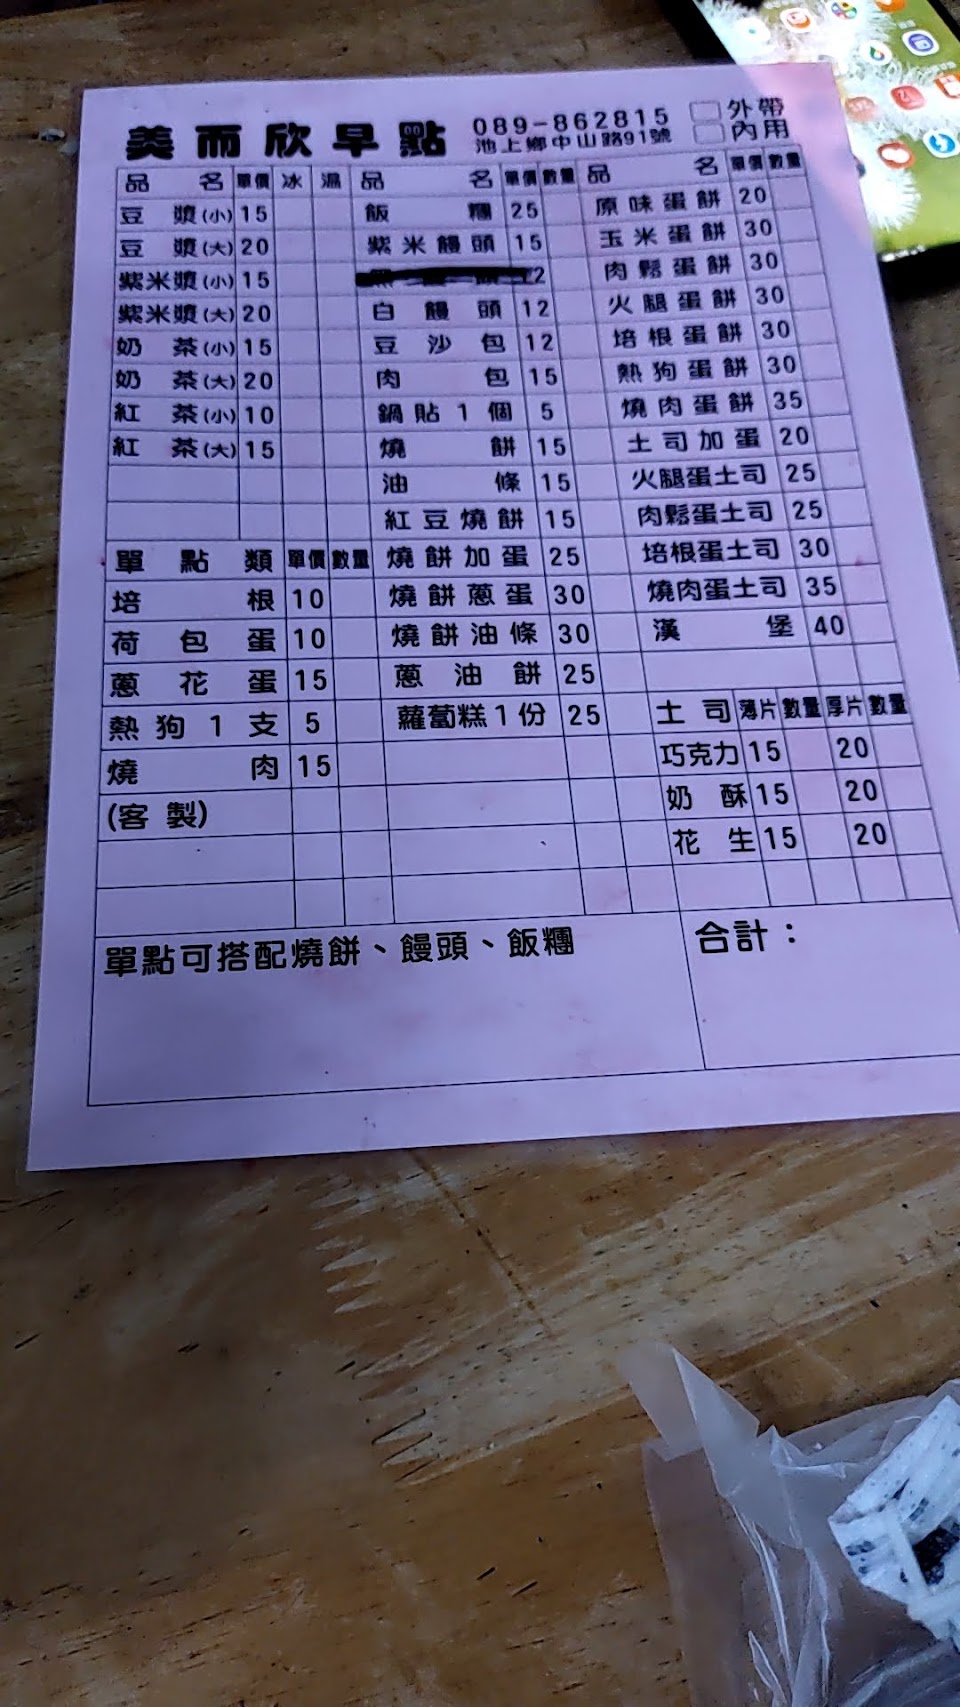 美而欣早點 089-862815 外帶
池上鄉中山路91號 內用
品名 單價 冰 溫 品名 單價 數量 品名 單價 數量
豆漿(小) 15 飯糰 25 原味蛋餅 20
豆漿(大) 20 紫米饅頭 15 玉米蛋餅 30
紫米漿(小) 15 肉鬆蛋餅 30
紫米漿(大) 20 白饅頭 12 火腿蛋餅 30
奶茶(小) 15 豆沙包 12 培根蛋餅 30
奶茶(大) 20 肉包 15 熱狗蛋餅 30
紅茶(小) 10 鍋貼1個 5 燒肉蛋餅 35
紅茶(大) 15 燒餅 15 土司加蛋 20
油條 15 火腿蛋土司 25
紅豆燒餅 15 肉鬆蛋土司 25
單點類 單價 數量 燒餅加蛋 25 培根蛋土司 30
培根 10 燒餅蔥蛋 30 燒肉蛋土司 35
荷包蛋 10 燒餅油條 30 漢堡 40
蔥花蛋 15 蔥油餅 25
熱狗1支 5 蘿蔔糕1份 25 土司 薄片 數量 厚片 數量
燒肉 15 巧克力 15 20
(客製) 奶酥 15 20
花生 15 20
單點可搭配燒餅、饅頭、飯糰 合計：